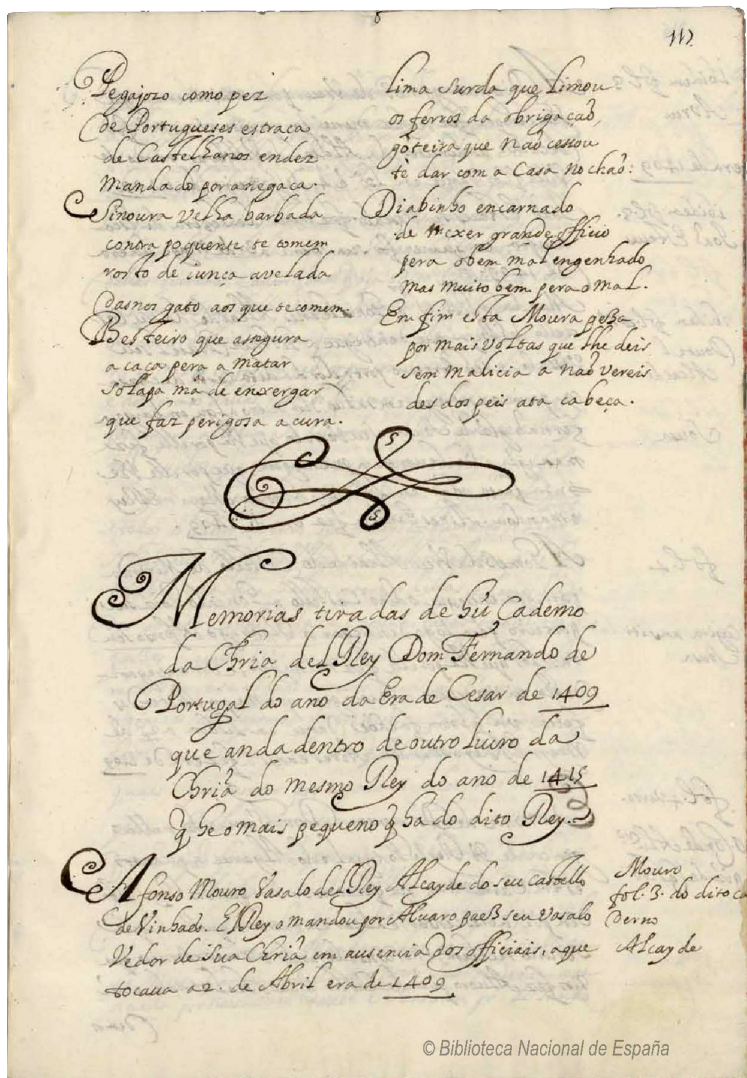 117
Pegajozo como pez
de Portugueses estraça
de Castelhanos endez
mandado por anegaça.
Sinoura velha barbada
contra poquente te comem
rosto de iunça avelada
dasnos gato aos que te comem.
Besteiro que assegura
a caça pera a matar
solapa má de enxergar
que faz perigosa a cura.
Lima surda que limou
os ferros da obrigaçaõ,
goteira que não cessou
tè dar com a Casa no chaõ:
Diabinho encarnado
de mexer grande officio
pera o bem mal engenhado
mas muito bem pera o mal.
Em fim esta Moura peßa
por mais voltas que lhe deis
sem malicia a naõ vereis
des dos peis ata cabeça.
Memorias tiradas de hũ Caderno
da Chria delRey Dom Fernando de
Portugal do ano da Era de Cesar de 1409
que anda dentro de outro livro da
Chriã do mesmo Rey do ano de 1415
q̃ he o mais pequeno q̃ ha do dito Rey.
Afonso Mouro Vasalo delRey Alcayde do seu Castello
de Vinhado. ElRey o mandou por Alvaro paeß seu vasalo
Vedor de sua Chriã em ausencia dos officiais, a que
tocava a 2. de Abril era de 1409
Mouro
fol. 3. do dito ca
derno
Alcayde
© Biblioteca Nacional de España